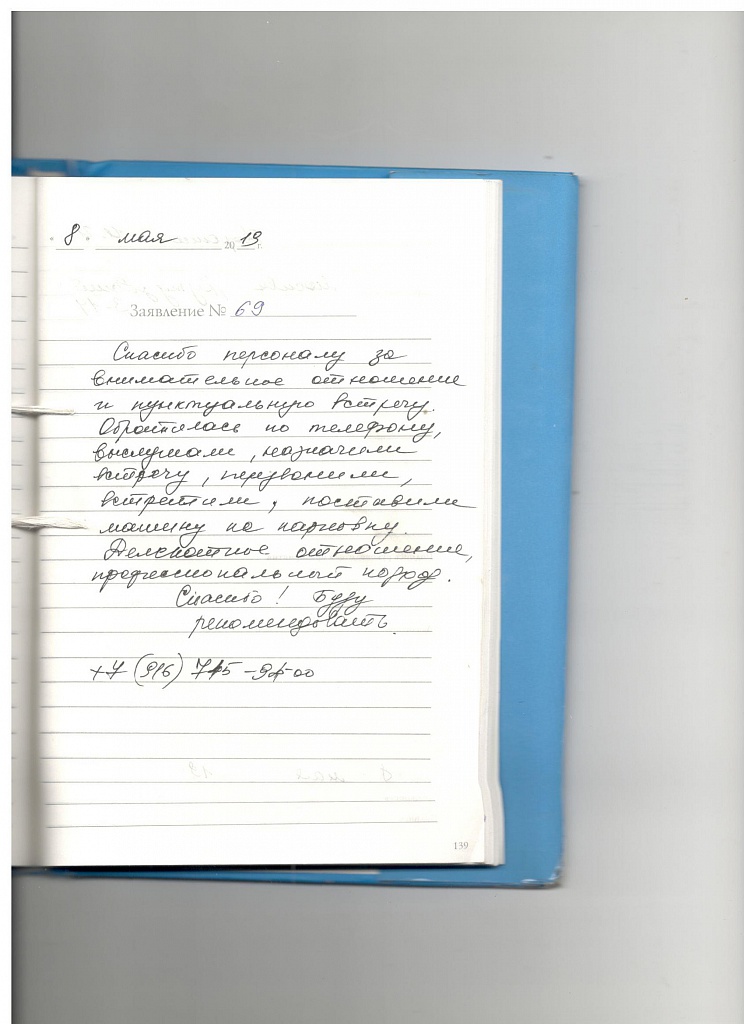 " 8 " мая 2019 г.
Заявление № 69
Спасибо персоналу за
внимательное отношение
и пунктуальную встречу.
Обратилась по телефону,
выслушали, назначили
встречу, перезвонили,
встретили, поставили
машину на парковку.
Деликатное отношение,
профессиональный подход.
Спасибо! Буду
рекомендовать.
+7 (916)
139